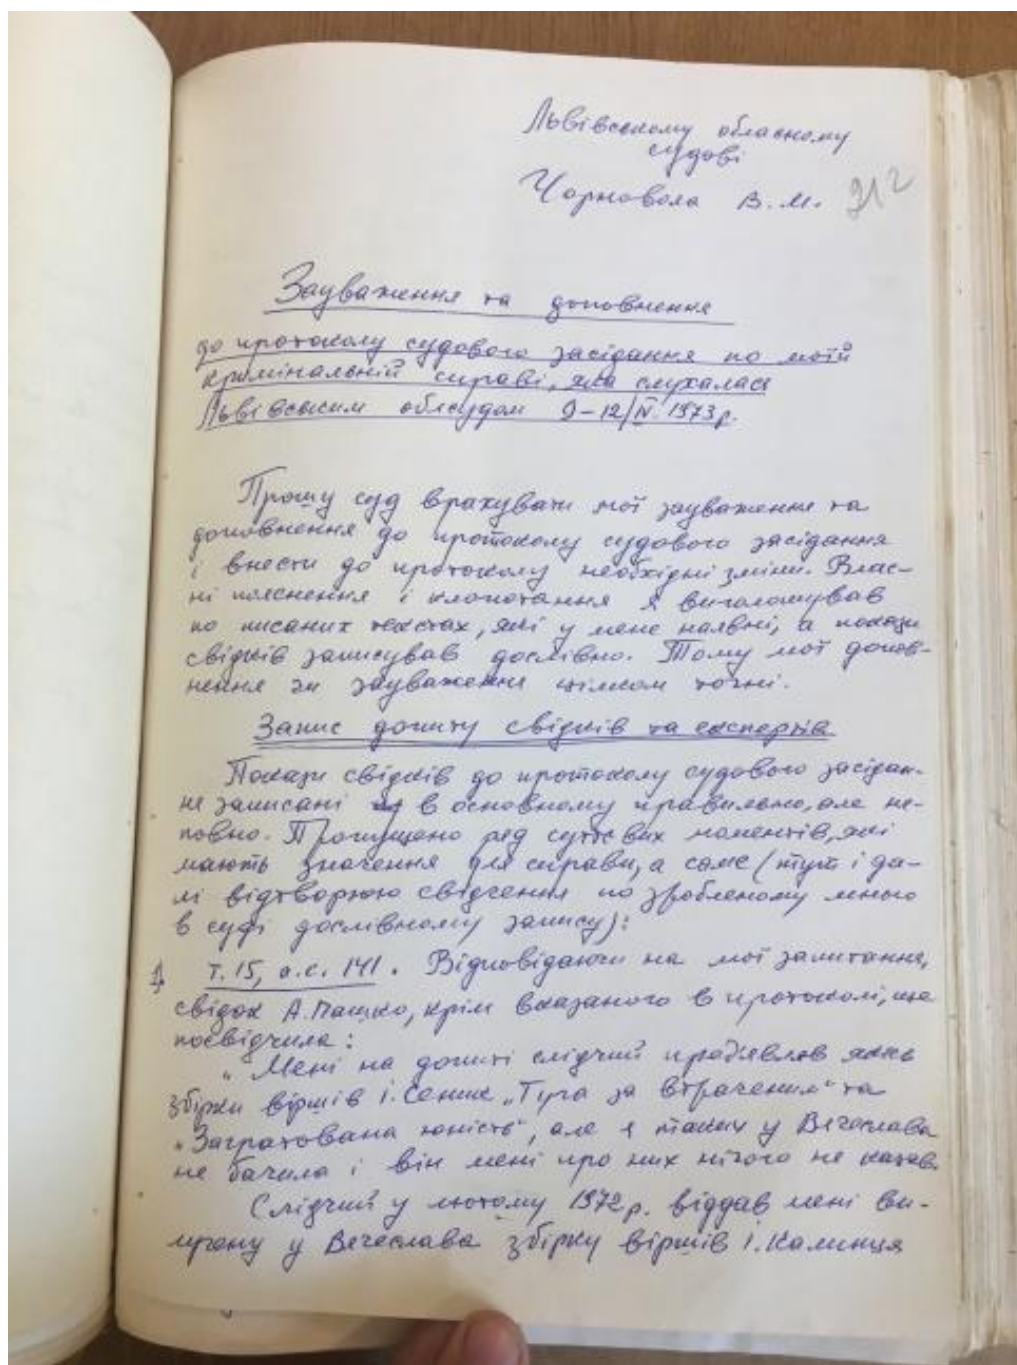 Львівському обласному
судові
Чорновола В.М. 212
Зауваження та доповнення
до протоколу судового засідання по моїй
кримінальній справі, яка слухалася
Львівським облсудом 9–12/IV. 1973р.
Прошу суд врахувати мої зауваження та
доповнення до протоколу судового засідання
і внести до протоколу необхідні зміни. Влас-
ні пояснення і клопотання я виголошував
по писаних текстах, які у мене наявні, а покази
свідків записував дослівно. Тому мої допов-
нення й зауваження цілком точні.
Запис допиту свідків та експертів
Покази свідків до протоколу судового засідан-
не записані в основному правильно, але не-
повно. Пропущено ряд суттєвих моментів, які
мають значення для справи, а саме (тут і да-
лі відтворюю свідчення по зробленому мною
в суді дослівному запису):
1. т. 15, а.с. 141. Відповідаючи на мої запитання,
свідок А. Пашко, крім вказаного в протоколі, ще
посвідчила:
„Мені на допиті слідчий пред'являв якісь
збірки віршів І. Сеник „Туга за втраченим" та
„Загратована юність", але я таких у Вячеслава
не бачила і він мені про них нічого не казав.
Слідчий у лютому 1972р. віддав мені ви-
лучену у Вячеслава збірку віршів І. Калинця